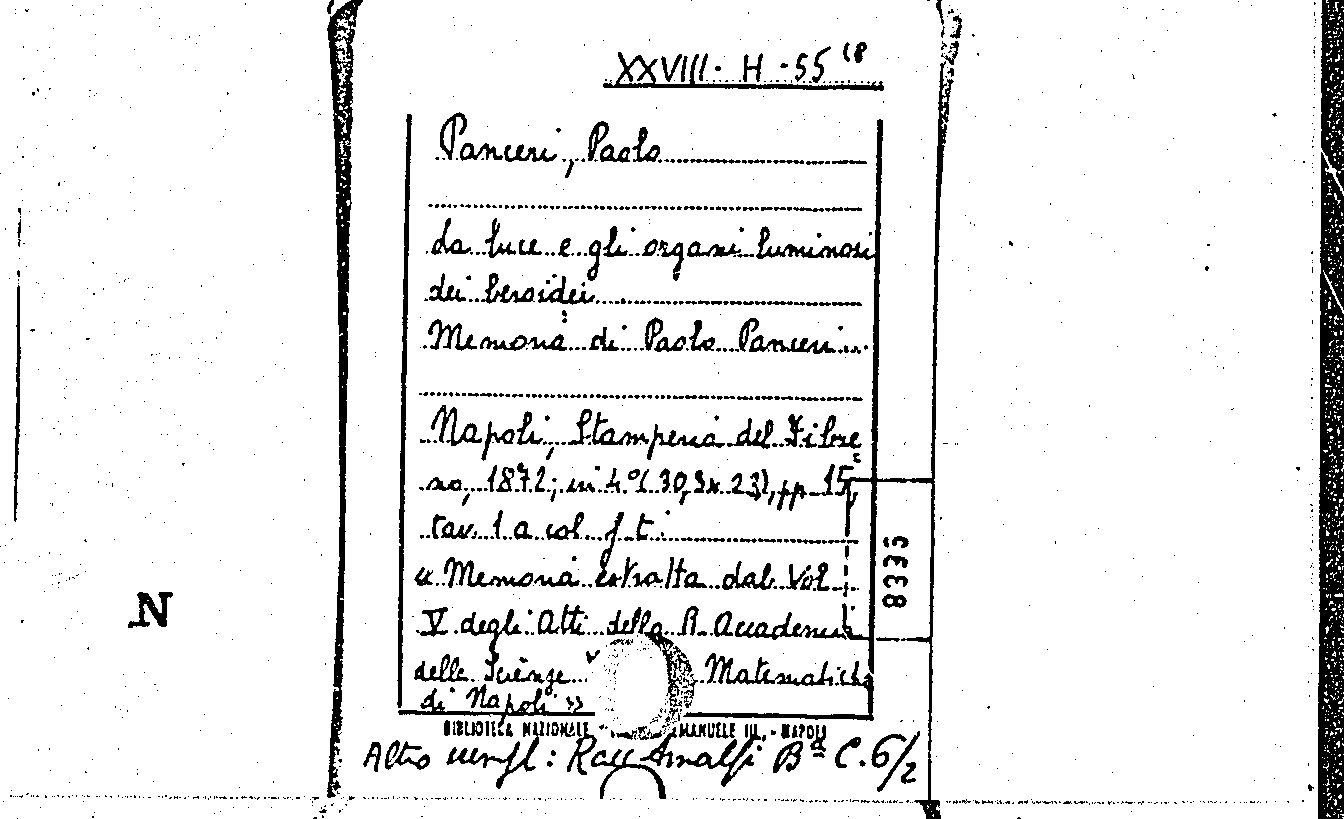 XXVIII. H. 55 (8
Panceri, Paolo
La luce e gli organi luminosi
dei beroidei.
Memoria di Paolo Panceri...
Napoli, Stamperia del Fibre
no, 1872; in 4° (30,3x23), pp 15,
tav. 1 a col. f. t.
« Memoria estratta dal Vol.
V degli Atti della R. Accademia
delle Scienze Matematiche
di Napoli »
BIBLIOTECA NAZIONALE - EMANUELE III. - NAPOLI
Altro esempl: Racc Amalfi Bª C. 6/2
8335
N